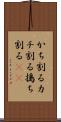 かち割るカ
チ割る搗ち
割る